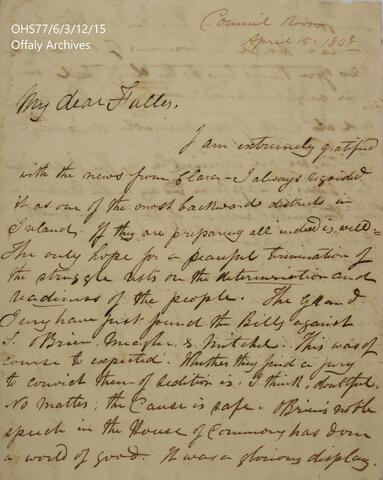 OHS77/6/3/12/15
Offaly Archives
Council Room
April 15. 1848
My dear Fuller,
I am extremely gratified
with the news from Clara - I always regarded
it as one of the most backward districts in
Ireland. If they are preparing all indeed is well -
The only hope for a peaceful termination of
the struggle rests on the determination and
readiness of the people. The Grand
Jury have just found the Bills against
S. O'Brien, Meagher & Mitchel. This was of
course to expected. Whether they find a jury
to convict them of sedition is, I think, doubtful.
No matter, the Cause is safe. O'Brien's noble
speech in the House of Commons has done
a world of good. It was a glorious display.